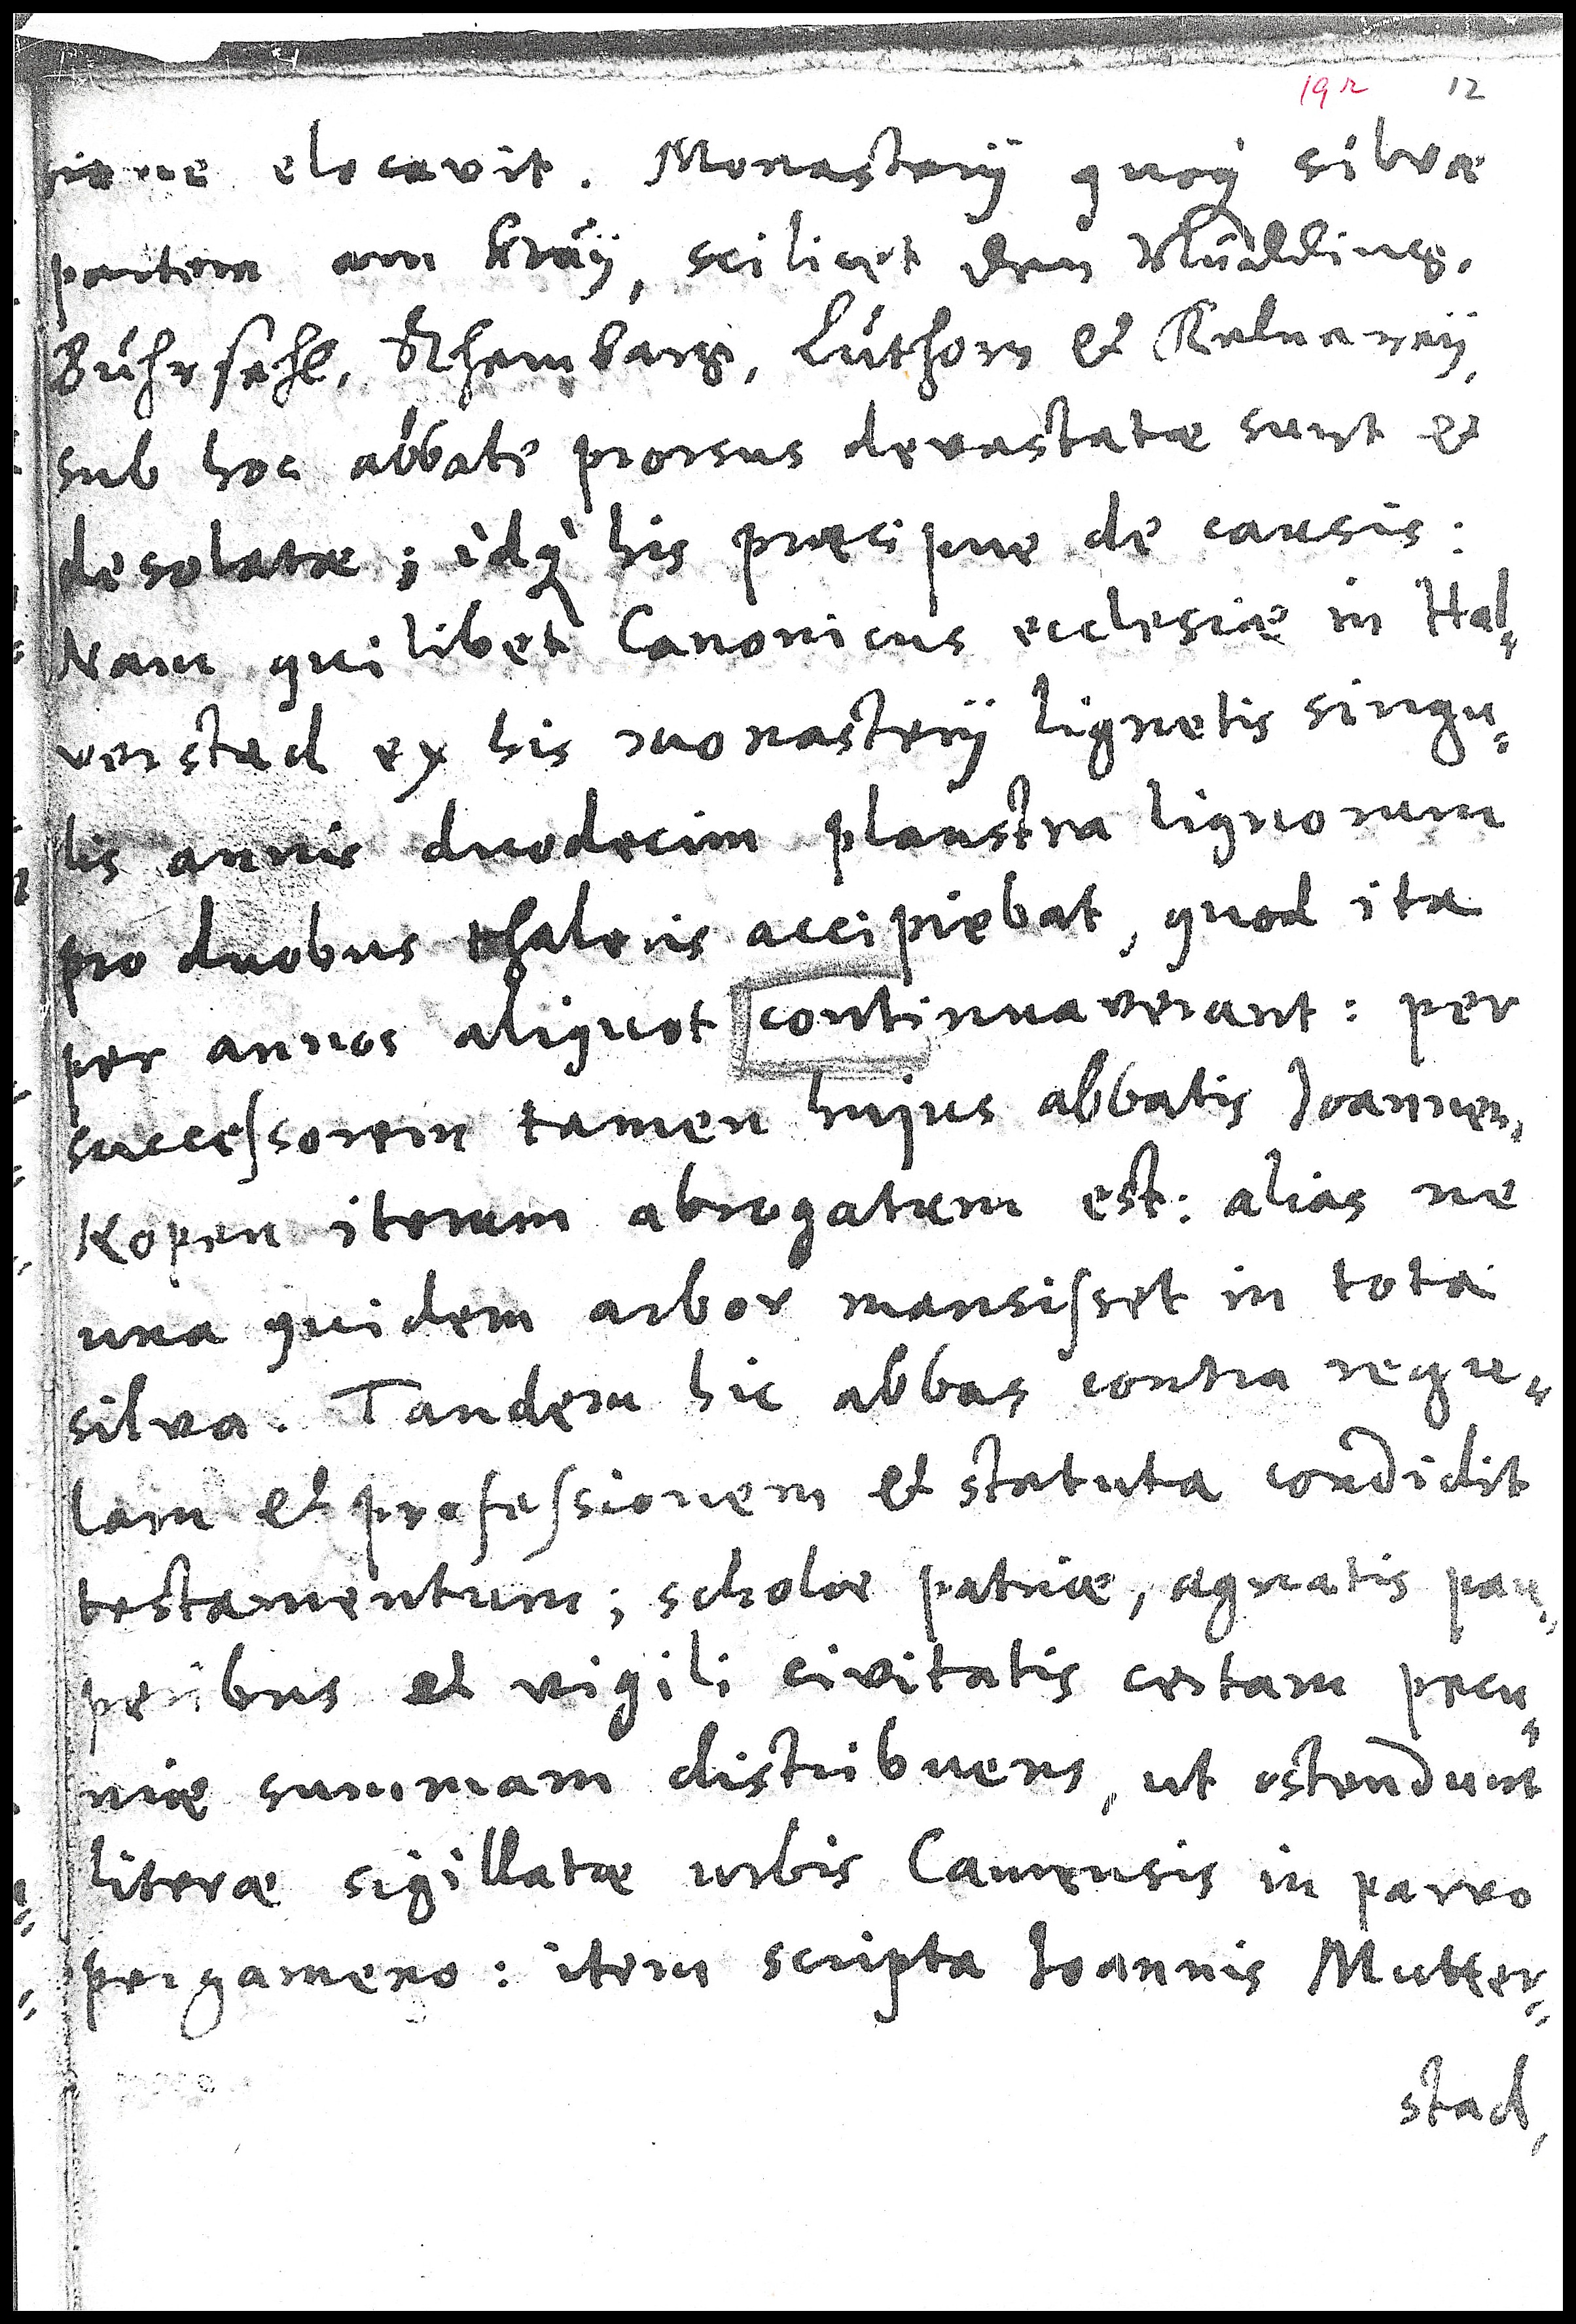 19r 12
elocavit. Monasterij quoq́ silvæ
partem am Hråÿ, scilicet den
Bührsahl, Luthorn et
sub hoc abbate prorsus devastatæ sunt et
desolatæ; idq́ his præcipue de causis:
Nam quilibet Canonicus ecclesiæ in Hal=
verstad ex his monasterij lignetis singu=
lis annis duodecim plaustra lignorum
pro duobus thaleris accipiebat, quod ita
per annos aliquot continuaverant: per
successorem tamen hujus abbatis Joannen,
Kopen iterum abrogatum est: alias ne
una quidem arbor mansisset in tota
silva. Tandem hic abbas contra regu=
lam et professionem et statuta condidit
testamentum; scholæ patriæ, agnatis pau=
peribus et vigili civitatis certam pecu=
niæ summam distribuens, ut ostendunt
literæ sigillatæ urbis Camensis in parvo
pergameno: item scripta Joannis Mutter=
stad,